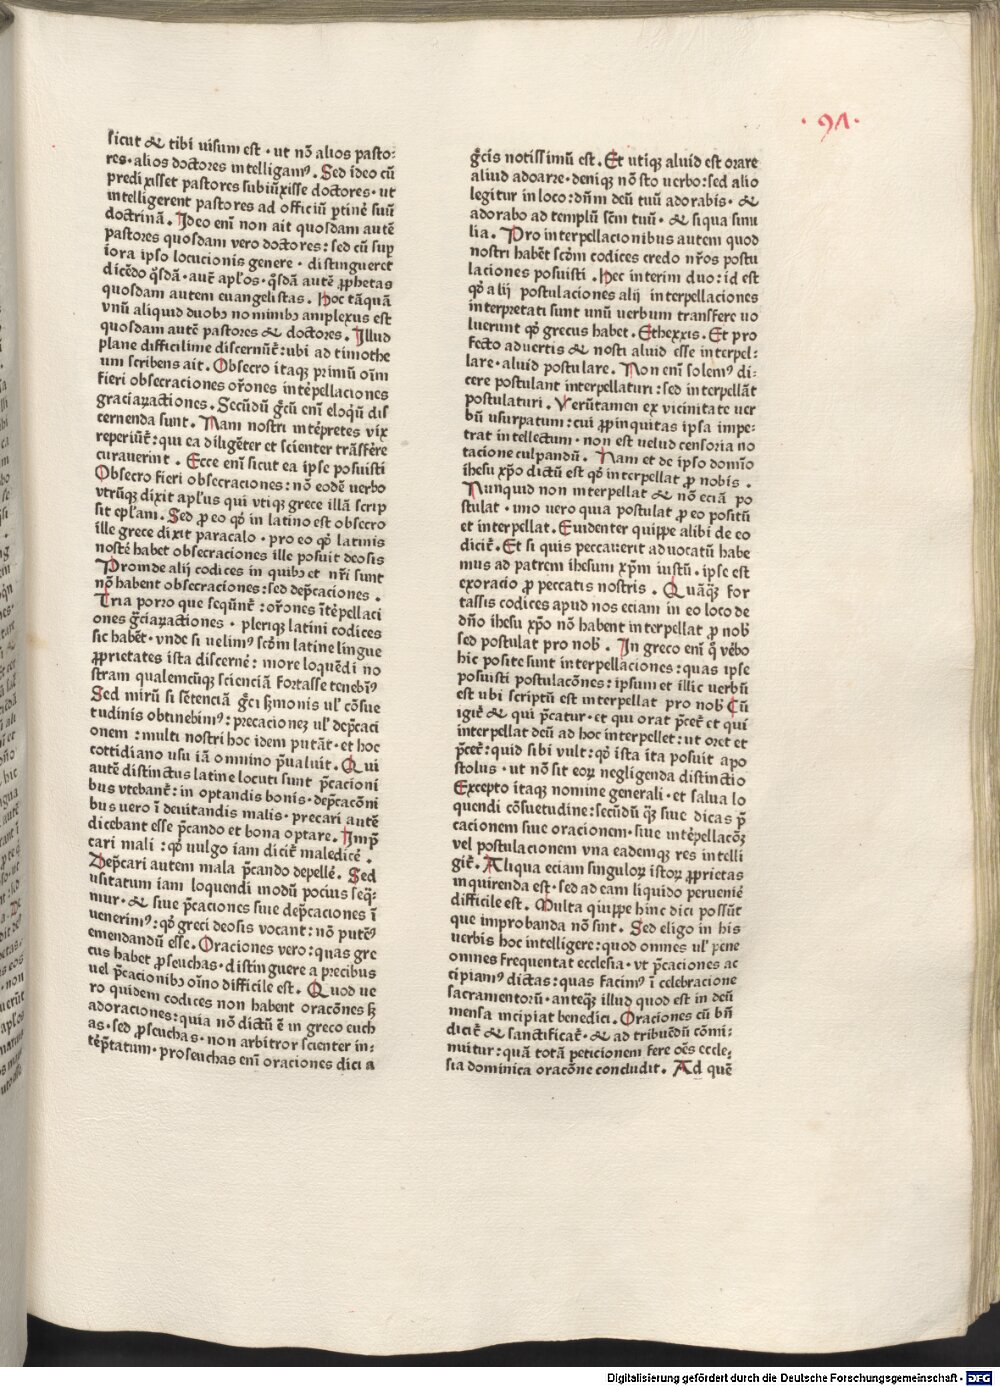 ·91·
sicut & tibi uisum est · ut nō alios pasto:
res · alios doctores intelligamꝰ . Sed ideo cū
predixisset pastores subiūxisse doctores · ut
intelligerent pastores ad officiū ꝑtinē suū
doctrinā . Ideo enī non ait quosdam autē
pastores quosdam vero doctores : sed cū sup
īora ipso locucionis genere · distingueret
dicēdo q̄sdā · autē apl̄os · q̄sdā autē ꝓphetas
quosdam autem euangelistas . Hoc tāquā
vnū aliquid duobꝫ nominibꝫ amplexus est
quosdam autē pastores & doctores . Illud
plane difficilime discernūt̄ : ubi ad timothe
um scribens ait . Obsecro itaqꝫ primū oīm
fieri obsecraciones or̄ones intēpellaciones
graciaꝝactiones . Secūdū ḡcū enī eloqū dis
cernenda sunt . Nam nostri intēpretes vix
reperiūt̄ : qui ea diligēter et scienter trāsfēre
curauerint . Ecce enī sicut ea ipse posuisti
Obsecro fieri obsecraciones : nō eodē uerbo
vtrūqꝫ dixit apl̄us qui vtiqꝫ grece illā scrip
sit epl̄am . Sed ꝓ eo qꝫ in latino est obsecro
ille grece dixit paracalo · pro eo qꝫ latinis
nostē habet obsecraciones ille posuit deosis
Proinde alij codices in quibꝫ et nr̄i sunt
nō habent obsecraciones : sed dep̄caciones .
Tria porro que seqūnt̄ : or̄ones ītēpellaci
ones ḡciaꝝactiones · pleriqꝫ latini codices
sic habēt · vnde si uelimꝰ scd̄m latine lingue
ꝓprietates ista discernē : more loquēdi no
stram qualemcūqꝫ scienciā fortasse tenebīꝰ
Sed mirū si sētenciā ḡci s̄monis ul̄ cōsue
tudinis obtinebimꝰ : precacionez ul̄ dep̄caci
onem : multi nostri hoc idem putāt · et hoc
cottidiano usu iā omnino p̄ualuit . Qui
autē distinctus latine locuti sunt p̄cacioni
bus vtebant̄ : in optandis bonis · dep̄cacōni
bus uero ī deuitandis malis · precari autē
dicebant esse p̄cando et bona optare . Imp̄
cari mali : qꝫ uulgo iam dicit̄ maledicē .
Dep̄cari autem mala p̄cando depellē . Sed
usitatum iam loquendi modū pocius seq̄-
mur · & siue p̄caciones siue dep̄caciones ī
uenerimꝰ : qꝫ greci deosis vocant : nō putēꝰ
emendandū esse . Oraciones vero : quas gre
cus habet ꝓseuchas · distinguere a precibus
uel p̄cacionibꝫ oīno difficile est . Quod ue
ro quidem codices non habent oracōnes sꝫ
adoraciones : quia nō dictū ē in greco euch
as · sed ꝓseuchas · non arbitror scienter in:
tēp̄tatum · proseuchas enī oraciones dici a
ḡcis notissimū est . Et utiqꝫ aluid est orare
aliud adoarre · deniqꝫ nō sto uerbo : sed alio
legitur in loco : dn̄m deū tuū adorabis · &
adorabo ad templū sc̄m tuū · & siqua simi
lia . Pro interpellacionibus autem quod
nostri habēt scd̄m codices credo nr̄os postu
laciones posuisti . Hec interim duo : id est
qꝫ alij postulaciones alij interpellaciones
interpretati sunt unū uerbum transfere uo
luerunt qꝫ grecus habet . Ethexxis . Et pro
fecto aduertis & nosti aluid esse interpel:
lare · aluid postulare . Non enī solemꝰ di-
cere postulant interpellaturi : sed interpellāt
postulaturi . Verūtamen ex vicinitate uer
bū usurpatum : cui ꝓpinquitas ipsa impe-
trat intellectum · non est uelud censoria no
tacione culpandū . Nam et de ipso domīo
ihesu xp̄o dictū est qꝫ interpellat ꝓ nobis .
Nunquid non interpellat & nō eciā po
stulat · imo uero quia postulat ꝓ eo positū
et interpellat . Euidenter quippe alibi de eo
dicit̄ . Et si quis peccauerit aduocatū habe
mus ad patrem ihesum xp̄m iustū . ipse est
exoracio ꝓ peccatis nostris . Quāqꝫ for
tassis codices apud nos eciam in eo loco de
dn̄o ihesu xp̄o nō habent interpellat ꝓ nob̄
sed postulat pro nob̄ . In greco enī q̄ vēbo
hic posite sunt interpellaciones : quas ipse
posuisti postulacōnes : ipsum et illic uerbū
est ubi scriptū est interpellat pro nob̄ Cū
igit̄ & qui p̄catur · et qui orat p̄cet̄ et qui
interpellat deū ad hoc interpellet : ut oret et
p̄cet̄ : quid sibi vult : qꝫ ista ita posuit apo
stolus · ut nō sit eoꝝ negligenda distinctio
Excepto itaqꝫ nomine generali · et salua lo
quendi cōsuetudine : secūdū qꝫ siue dicas p̄
cacionem siue oracionem · siue intēpellacōꝫ
vel postulacionem vna eademqꝫ res intelli
git̄ . Aliqua eciam singuloꝝ istoꝝ ꝓprietas
inquirenda est · sed ad eam liquido peruenīē
difficile est . Multa quippe hinc dici possūt
que improbanda nō sint . Sed eligo in his
uerbis hoc intelligere : quod omnes ul̄ pene
omnes frequentat ecclesia · vt p̄caciones ac
cipiamꝰ dictas : quas facimꝰ ī celebracione
sacramentorū · anteqꝫ illud quod est in deū
mensa incipiat benedici . Oraciones cū bn̄
dicit̄ & sanctificat̄ · & ad tribuēdū cōmi-
nuitur : quā totā peticionem fere oēs eccle-
sia dominica oracōne concludit . Ad quē
Digitalisierung gefördert durch die Deutsche Forschungsgemeinschaft - DFG